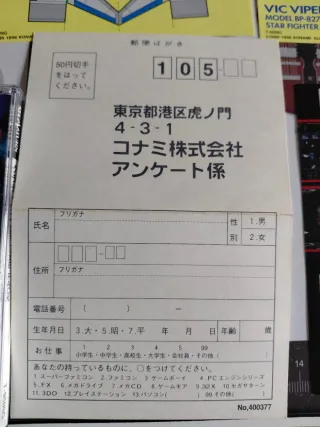 VIC VIPER
MODEL BP-827
STAR FIGHTER
郵便はがき
50円切手
をはって
ください。
105-
東京都港区虎ノ門
4-3-1
コナミ株式会社
アンケート係
フリガナ
氏名
性別
1.男
2.女
住所
フリガナ
電話番号 ( ) ー
生年月日 3.大・5.昭・7.平 年 月 日 年齢 歳
お仕事
1 2 3 4 5 99
小学生・中学生・高校生・大学生・会社員・その他( )
あなたの持っているものに、○をつけてください。
1 スーパーファミコン 2 ファミコン 3 ゲームボーイ 4 PCエンジンシリーズ
5.FX 6 メガドライブ 7 メガCD 8 ゲームギア 9.32X 10 セガサターン
11.3DO 12.プレイステーション 13.パソコン( ) 99.その他( )
No,400377
14